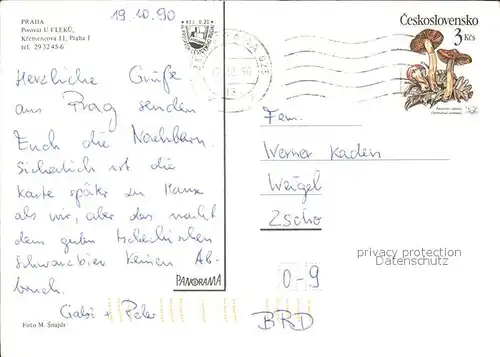 PRAHA
Pivovar U FLEKŮ,
Křemencova 11, Praha 1
tel. 29 32 45-6
19.10.90
Kčs 0,20
Československo
3 Kčs
Herzliche Grüße
aus Prag senden
Euch die Nachbarn.
Sicherlich ist die
Karte später zu Hause
als wir, aber das macht
dem guten tschechischen
Schwarzbier keinen Ab-
bruch.
Gabi + Peter
Fam.
Werner Kaden
Weigel
Zscho
0-9
BRD
PANORAMA
Foto M. Šnajdr
privacy protection
Datenschutz